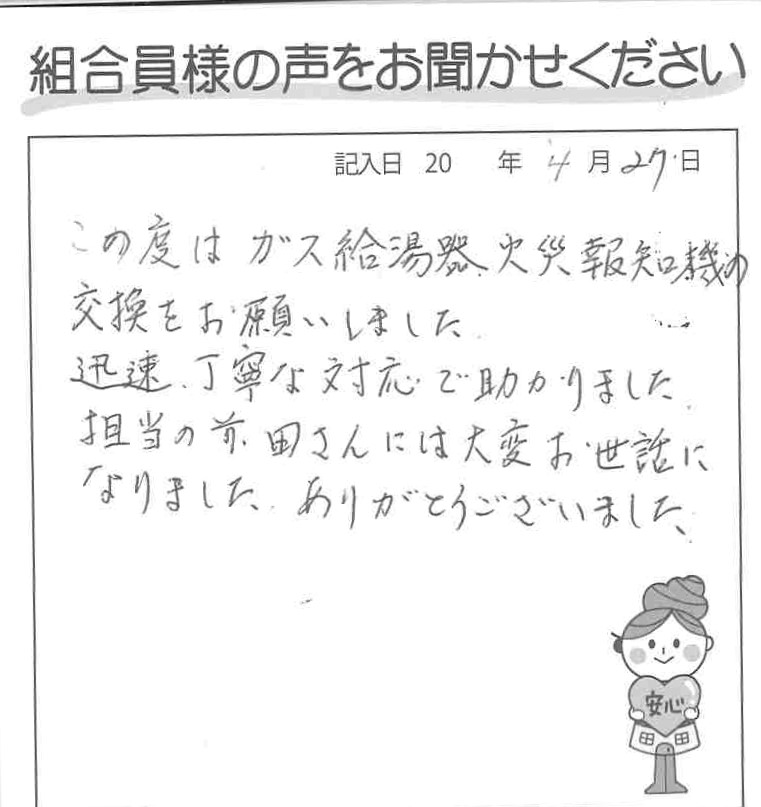 組合員様の声をお聞かせください
記入日 20 年 4月27日
この度は ガス給湯器、火災報知機の
交換をお願いしました。
迅速、丁寧な対応で助かりました。
担当の前田さんには大変お世話に
なりました。ありがとうございました。
安心